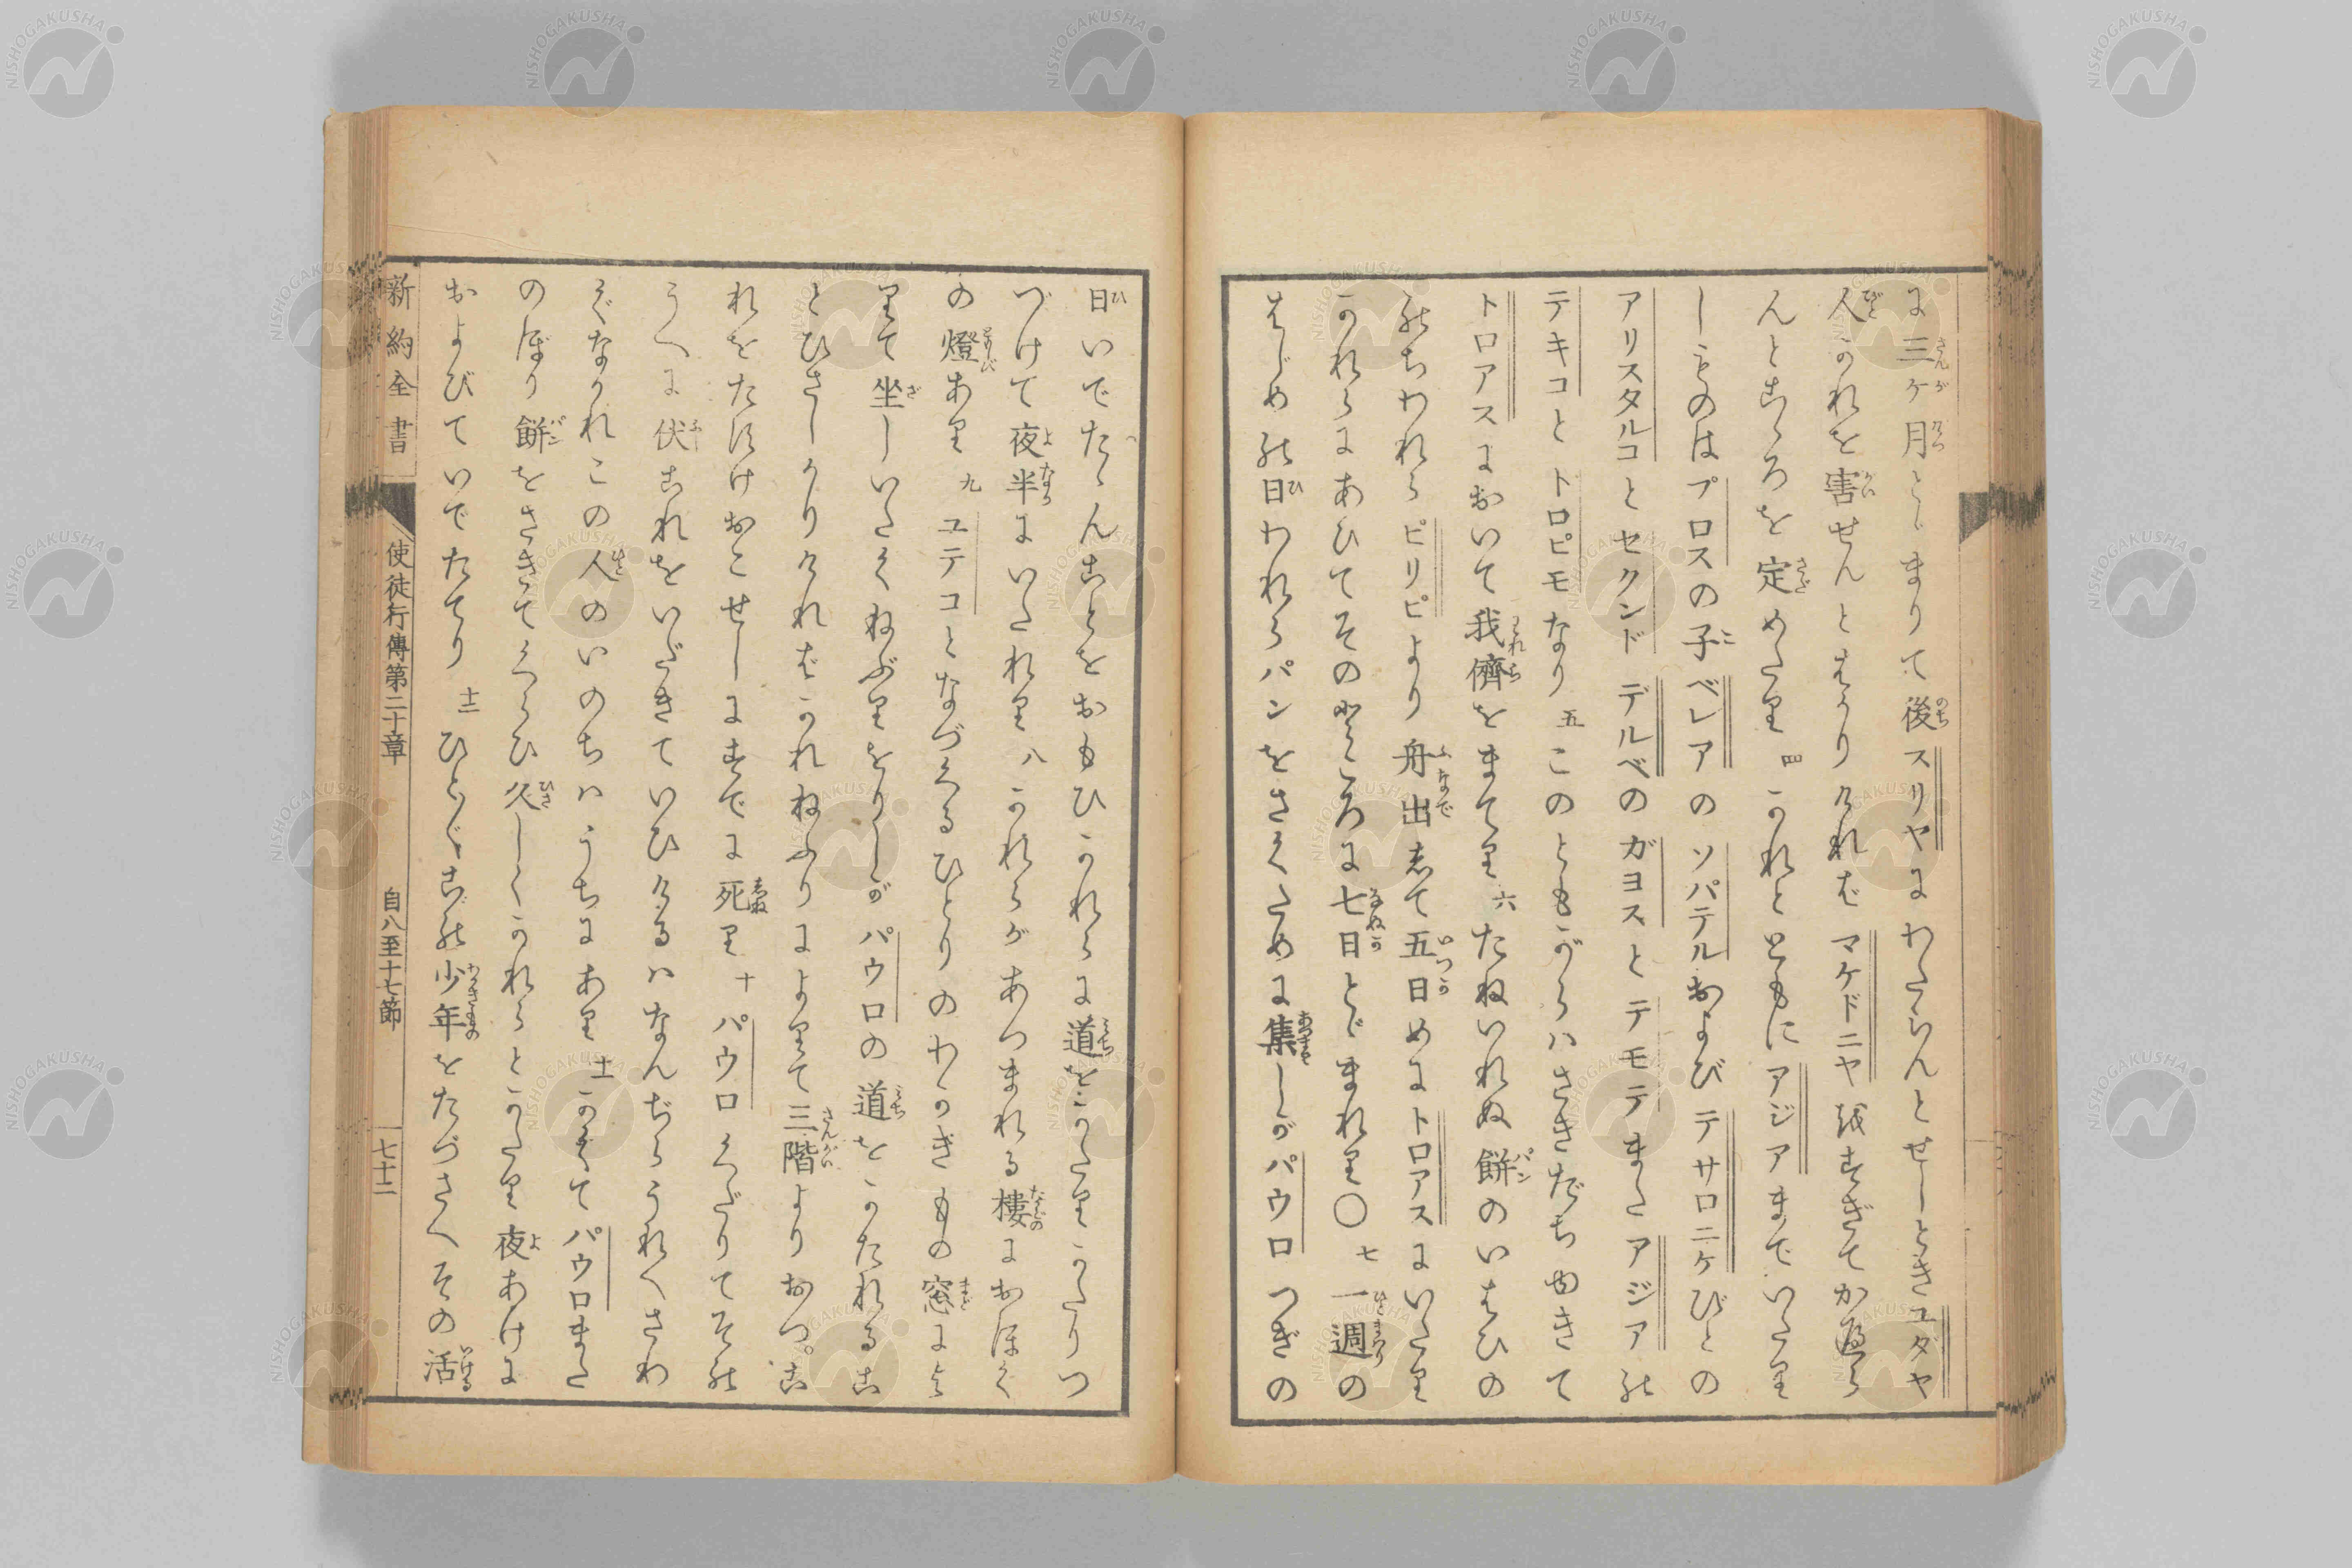 に三ケ月とゞまりて後スリヤにわたらんとせしときユダヤ
人かれを害せんとはかりければマケドニヤを越すぎてかへら
んとこゝろを定めたり 四 かれとともにアジアまでいたり
しものはプロスの子ベレアのソパテルおよびテサロニケびとの
アリスタルコとセクンドデルベのガヨスとテモテまたアジアの
テキコとトロピモなり 五 このともがらハさきだちゆきて
トロアスにおいて我儕をまてり 六 たねいれぬ餅のいはひの
のちわれらピリピより舟出して五日めにトロアスにいたり
かれらにあひてそのところに七日とゞまれり〇 七 一週の
はじめの日われらパンをさくために集しがパウロつぎの
日いでたゝんことをおもひかれらに道をかたりかたりつ
づけて夜半にいたれり 八 かれらがあつまれる樓におほく
の燈あり 九 ユテコとなづくるひとりのわかきもの窓によ
りて坐しいたくねぶりをりしがパウロの道をかたれるこ
とひさしかりければかれねふりによりて三階よりおつ。こ
れをたすけおこせしにすでに死り 十 パウロくだりてその
うへに伏これをいだきていひけるハなんぢらうれへさわ
ぐなかれこの人のいのちハうちにあり 十一 かくてパウロまた
のぼり餅をさきてくらひ久しくかれらとかたり夜あけに
およびていでたてり 十二 ひとゞこの少年をたづさへその活
新約全書 使徒行傳第二十章 自八至十七節 七十二
NISHOGAKUSHA